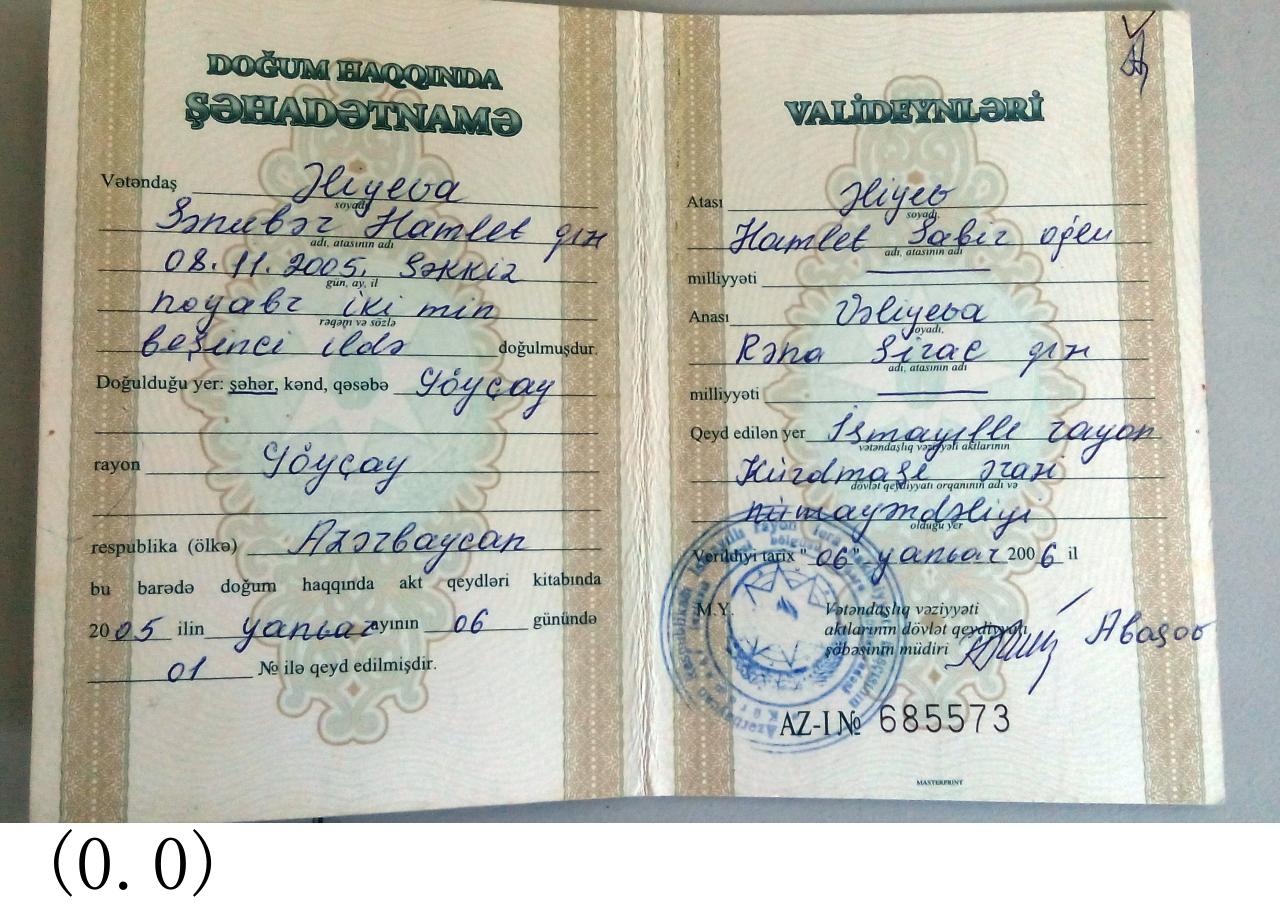 DOĞUM HAQQINDA
ŞƏHADƏTNAMƏ
Vətəndaş Əliyeva
soyadı
Sənubər Hamlet qızı
adı, atasının adı
08.11.2005. Səkkiz
gün, ay, il
noyabr iki min
rəqəm və sözlə
beşinci ildə doğulmuşdur.
Doğulduğu yer: şəhər, kənd, qəsəbə Göyçay
rayon Göyçay
respublika (ölkə) Azərbaycan
bu barədə doğum haqqında akt qeydləri kitabında
2005 ilin yanvar ayının 06 günündə
01 № ilə qeyd edilmişdir.
VALİDEYNLƏRİ
Atası Əliyev
soyadı,
Hamlet Sabir oğlu
adı, atasının adı
milliyyəti
Anası Vəliyeva
soyadı,
Rəna Sirac qızı
adı, atasının adı
milliyyəti
Qeyd edilən yer İsmayıllı rayon
vətəndaşlıq vəziyyəti aktlarının
Kürdmaşı ərazi
dövlət qeydiyyatı orqanının adı və
nümayəndəliyi
olduğu yer
Verildiyi tarix "06" yanvar 2006 il
M.Y. Vətəndaşlıq vəziyyəti
aktlarının dövlət qeydiyyatı
şöbəsinin müdiri Abaşov
AZ-I № 685573
MASTERPRINT
(0.0)